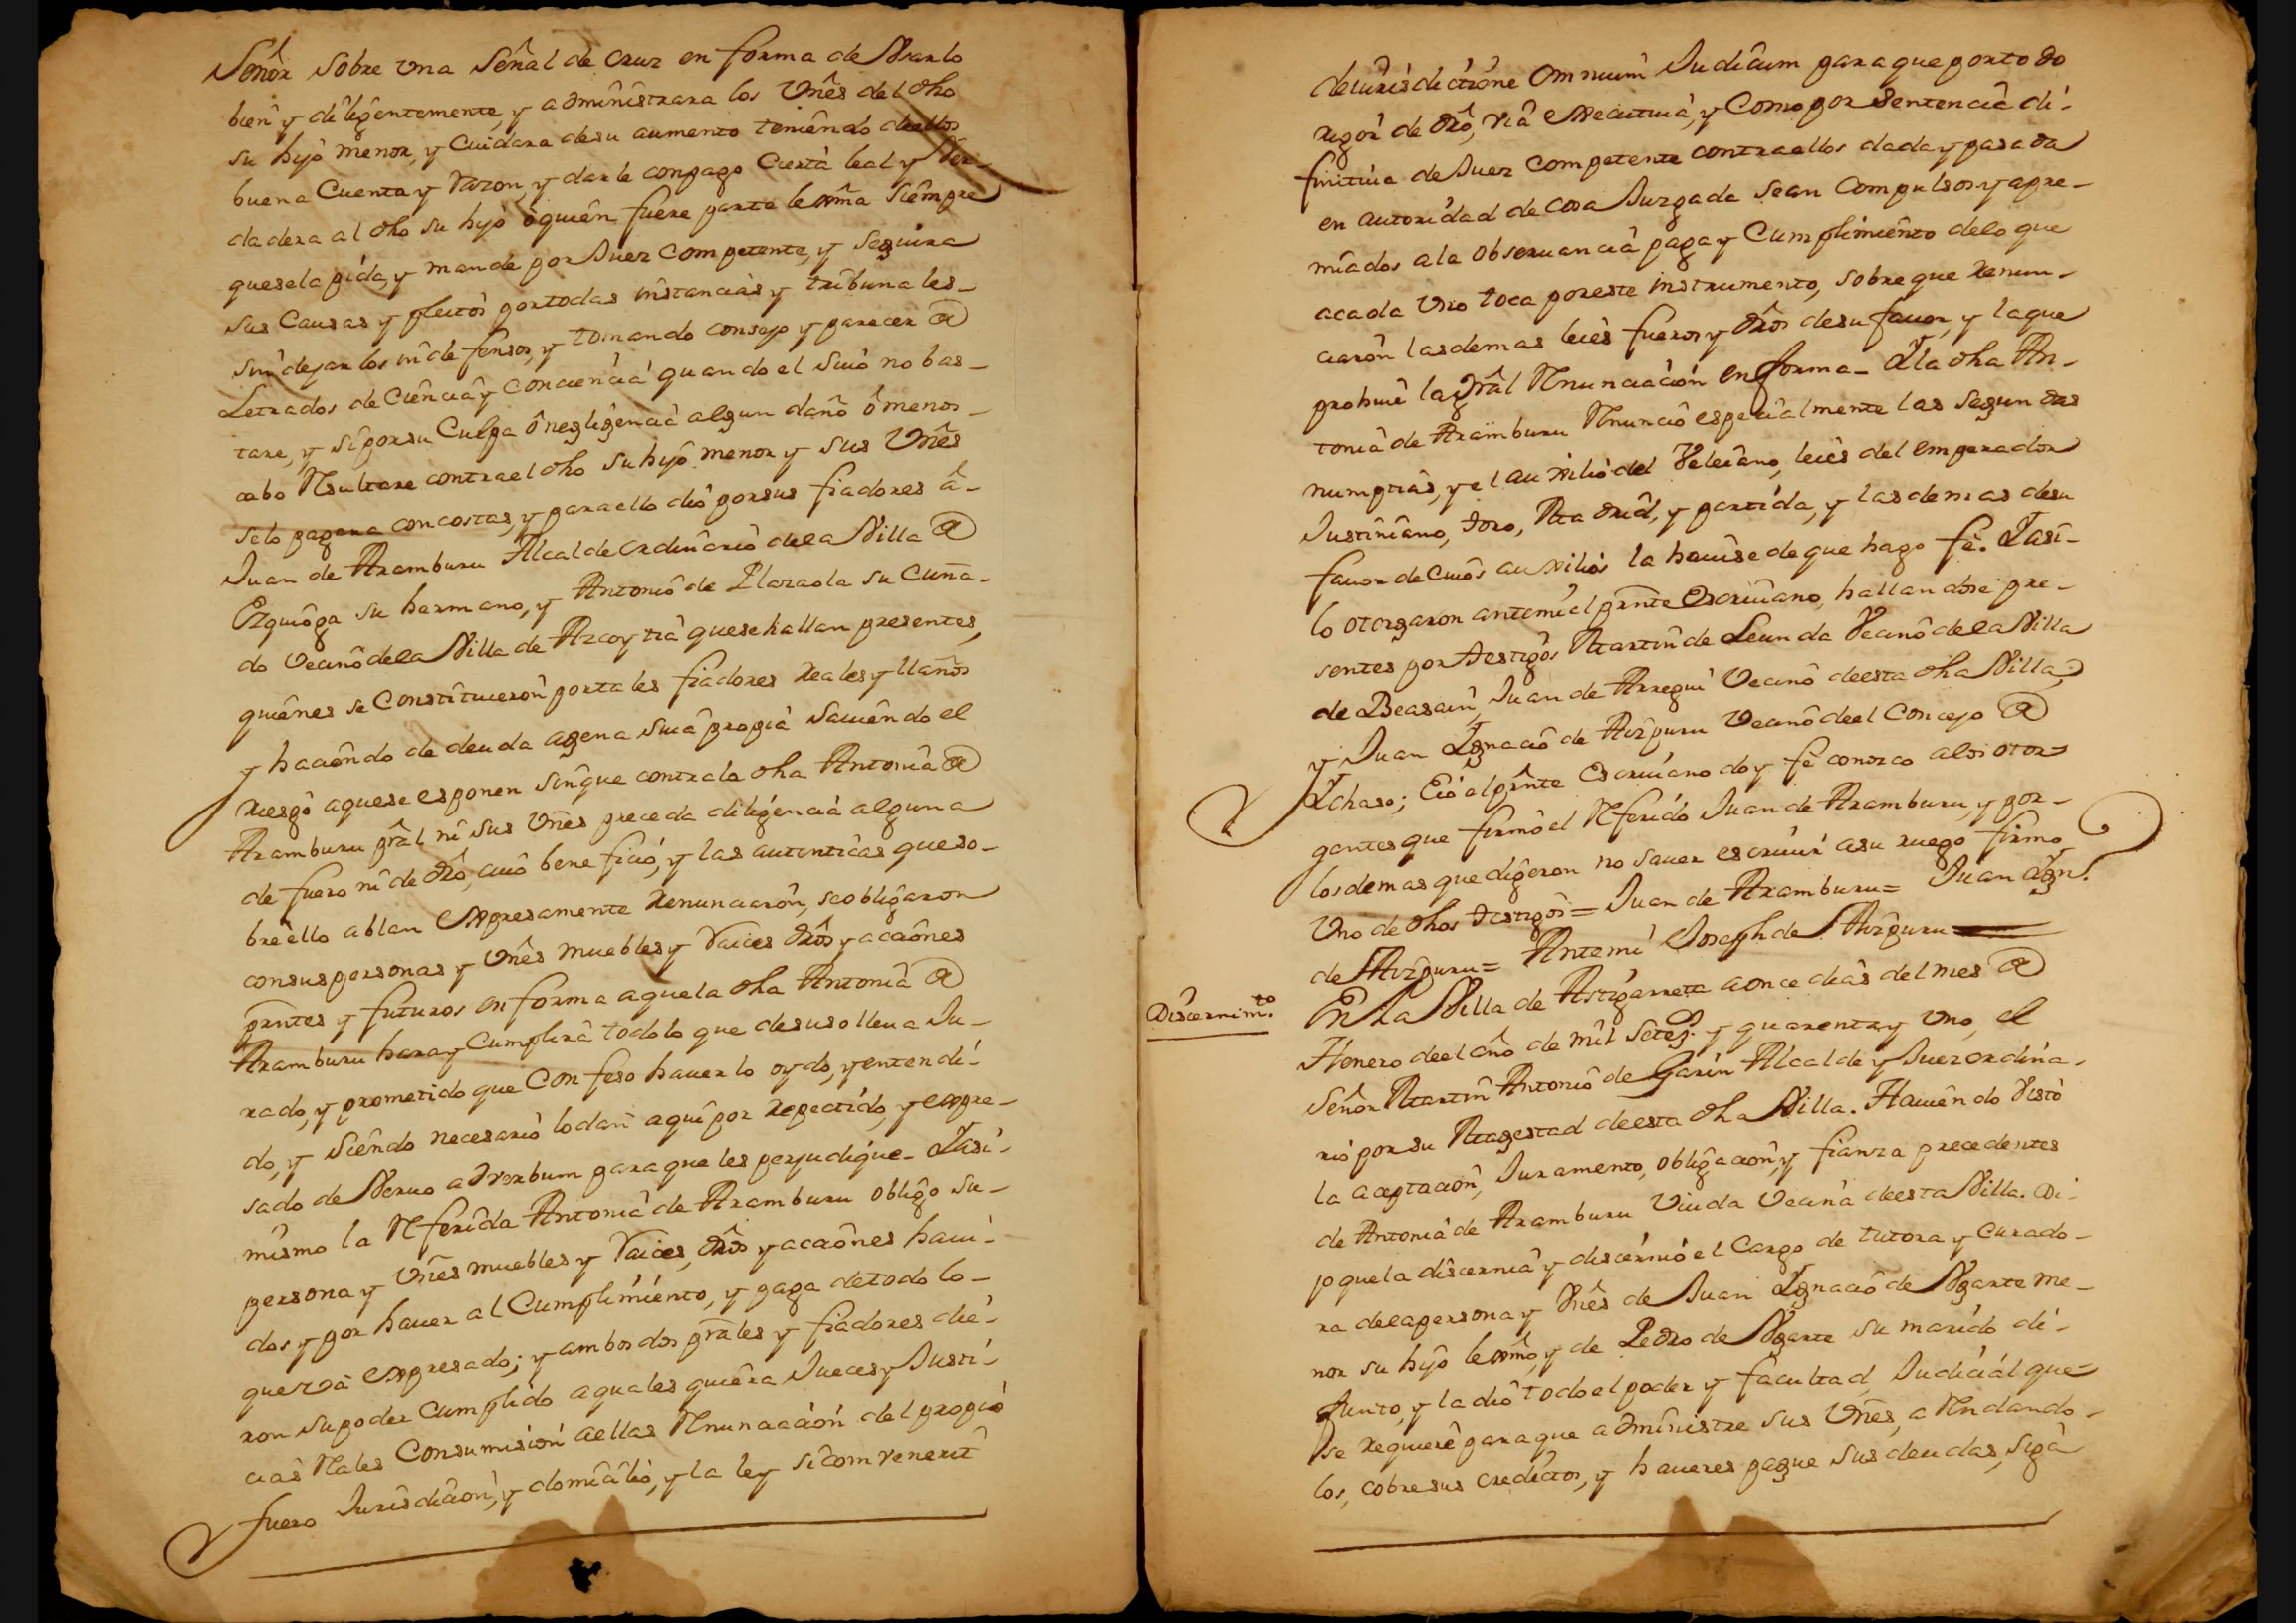 Señor sobre una señal de cruz en forma de Usarlo
bien y diligentemente, y administrara los Vnês del dho
su hijo menor, y Cuidara desu aumento teniendo deellos
buena Cuenta y razon, y darle conpago Cierta leal y Ver-
dadera al dho su hijo ô quien fuere parte lexma siempre
quesela pida, y mande por Juez Competente, y Seguira
sus Causas y pleitos portodas instancias y tribunales-
sin dejarlos indefensos, y tomando consejo y parecer @
Letrados de Ciencia y conciencia quando el suio no bas-
tare, y si porsu Culpa ô negligencia algun daño ô menos-
cabo Resultare contrael dho su hijo menor y sus Vnês
selo pagara concostas, y paraello dió porsus fiadores â-
Juan de Aramburu Alcalde ordinario dela Villa @
Ezquioga su hermano, y Antonio de Plazaola su Cuña-
do Vecino dela Villa de Azcoytia quesehallan presentes,
quienes se Constituieron portales fiadores Reales y llaños
y haciendo de deuda agena suia propia Sauiendo el
riesgo aquese esponen sinque contrala dha Antonia @
Aramburu prâl ni sus Vnês preceda diligencia alguna
de fuero ni de dro, cuio beneficio, y las autenticas queso-
breello ablan expresamente renunciaron, seobligaron
consuspersonas y Vnês muebles y Raices dros y acciones
prntes y futuros en forma aquela dha Antonia @
Aramburu hara y Cumplira todolo que desusolleua Ju-
rado, y prometido que Confeso hauerlo oydo, y entendi-
do, y siendo necesario lodan aqui por repectido, y expre-
sado de Veruo adverbum paraque les perjudique- Yasi-
mismo la Referida Antonia de Aramburu obligo su-
persona y Vnês muebles y Raices, dros y acciones haui-
dos y por hauer al Cumplimiento, y paga detodo lo-
queva expresado; y ambos dos prâles y fiadores die-
ron supoder Cumplido aquales quiera Jueces y Justi-
cias Rales Consumision aellas Renunciacion del propio
fuero Jurisdicion, y domicilio, y la ley sicomvenerit
deiurisdictione Omnium Judicum paraque portodo
rigor de dro, via executiua, y Como por Sentencia di-
finitiua de Juez Competente contraellos dada y pasada
en autoridad de cosa Juzgada sean Compulsos y apre-
miados ala obseruancia paga y Cumplimiento delo que
acada Uno toca poreste instrumento, sobreque renun-
ciaron lasdemas leies fueros y dros desu fauor, y laque
prohiue la grâl Renunciacion en forma- Yla dha An-
tonia de Aramburu Renunció especialmente las segundas
numptias, y el auxilio del Veleiano, leies del emperador
Justiniano, toro, Madrid, y partida, y lasdemas desu
fauor de cuios auxilios la hauise deque hago fe. Yasi-
lo otorgaron antemi el prnte Escriuano, hallandose pre-
sentes por testigos Martin de Leunda Vecino dela Villa
de Beasain, Juan de Arregui Vecino deesta dha Villa,
y Juan Ygnacio de Aizpuru Vecino deel Concejo @
Ychaso; E io el prnte Escriuano doy fe conozco alos otor=
gantes que firmó el Referido Juan de Aramburu, y por-
losdemas que digeron no sauer escriuir asu ruego firmo
Uno de dhos testigos= Juan de Aramburu= Juan Ygn.
de Aizpuru= Antemi Joseph de Aizpuru
Discernim.to
En La Villa de Astigarreta aonce dias del mes @
Henero deel año de mil setez. y quarenta y uno, el
Señor Martin Antonio de Garin Alcalde y Juez ordina-
rio por su Magestad deesta dha Villa. Hauiendo Visto
la aceptacion, Juramento, obligacion, y fianza precedentes
de Antonia de Aramburu Viuda Vecina deesta Villa. Di-
jo quela discernia y discernió el Cargo de tutora y Curado-
ra delapersona y Vnês de Juan Ygnacio de Ugarte me-
nor su hijo lexmo, y de Pedro de Ugarte su marido di-
funto, y ladio todoelpoder y facultad Judicial que=
se requiere paraque administre sus Vnês, aRendando-
los, cobresus credictos, y haueres pague sus deudas, siga